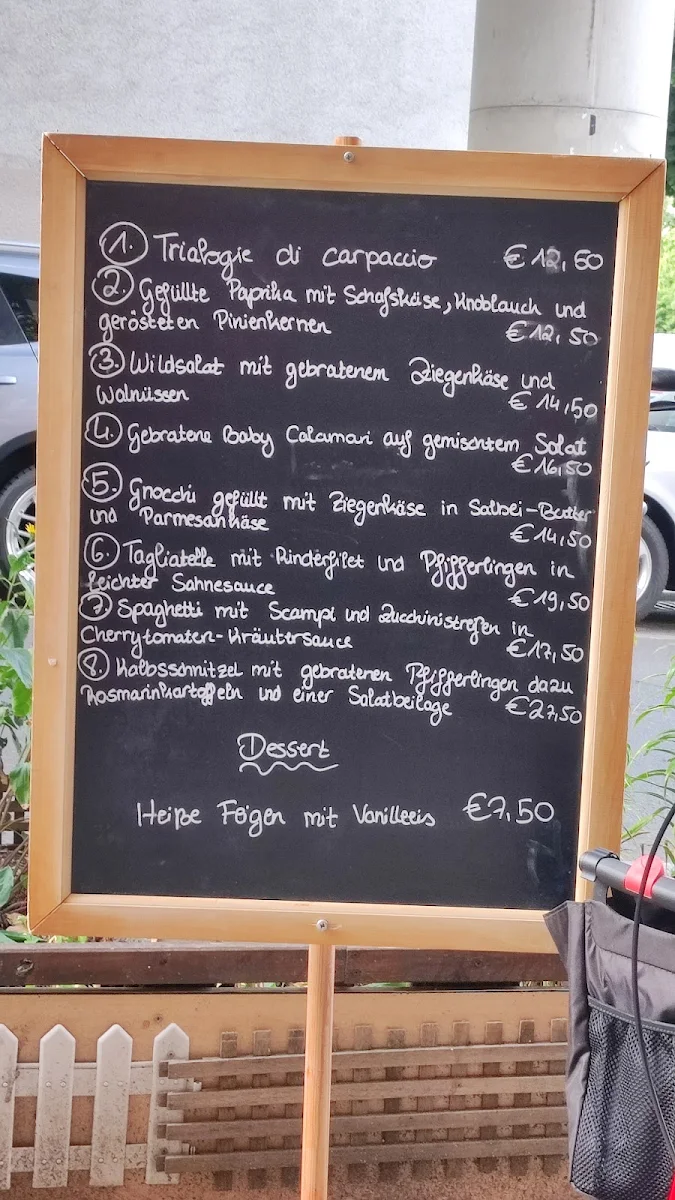 1. Trialogie di carpaccio €12,60
2. Gefüllte Paprika mit Schafskäse, Knoblauch und
gerösteten Pinienkernen €12,50
3. Wildsalat mit gebratenem Ziegenkäse und
Walnüssen €14,50
4. Gebratene Baby Calamari auf gemischtem Salat
€16,50
5. Gnocchi gefüllt mit Ziegenkäse in Salbei-Butter
und Parmesankäse €14,50
6. Tagliatelle mit Rinderfilet und Pfifferlingen in
leichter Sahnesauce €19,50
7. Spaghetti mit Scampi und Zucchinistreifen in
Cherrytomaten-Kräutersauce €17,50
8. Kalbsschnitzel mit gebratenen Pfifferlingen dazu
Rosmarinkartoffeln und einer Salatbeilage €27,50
Dessert
Heiße Feigen mit Vanilleeis €7,50